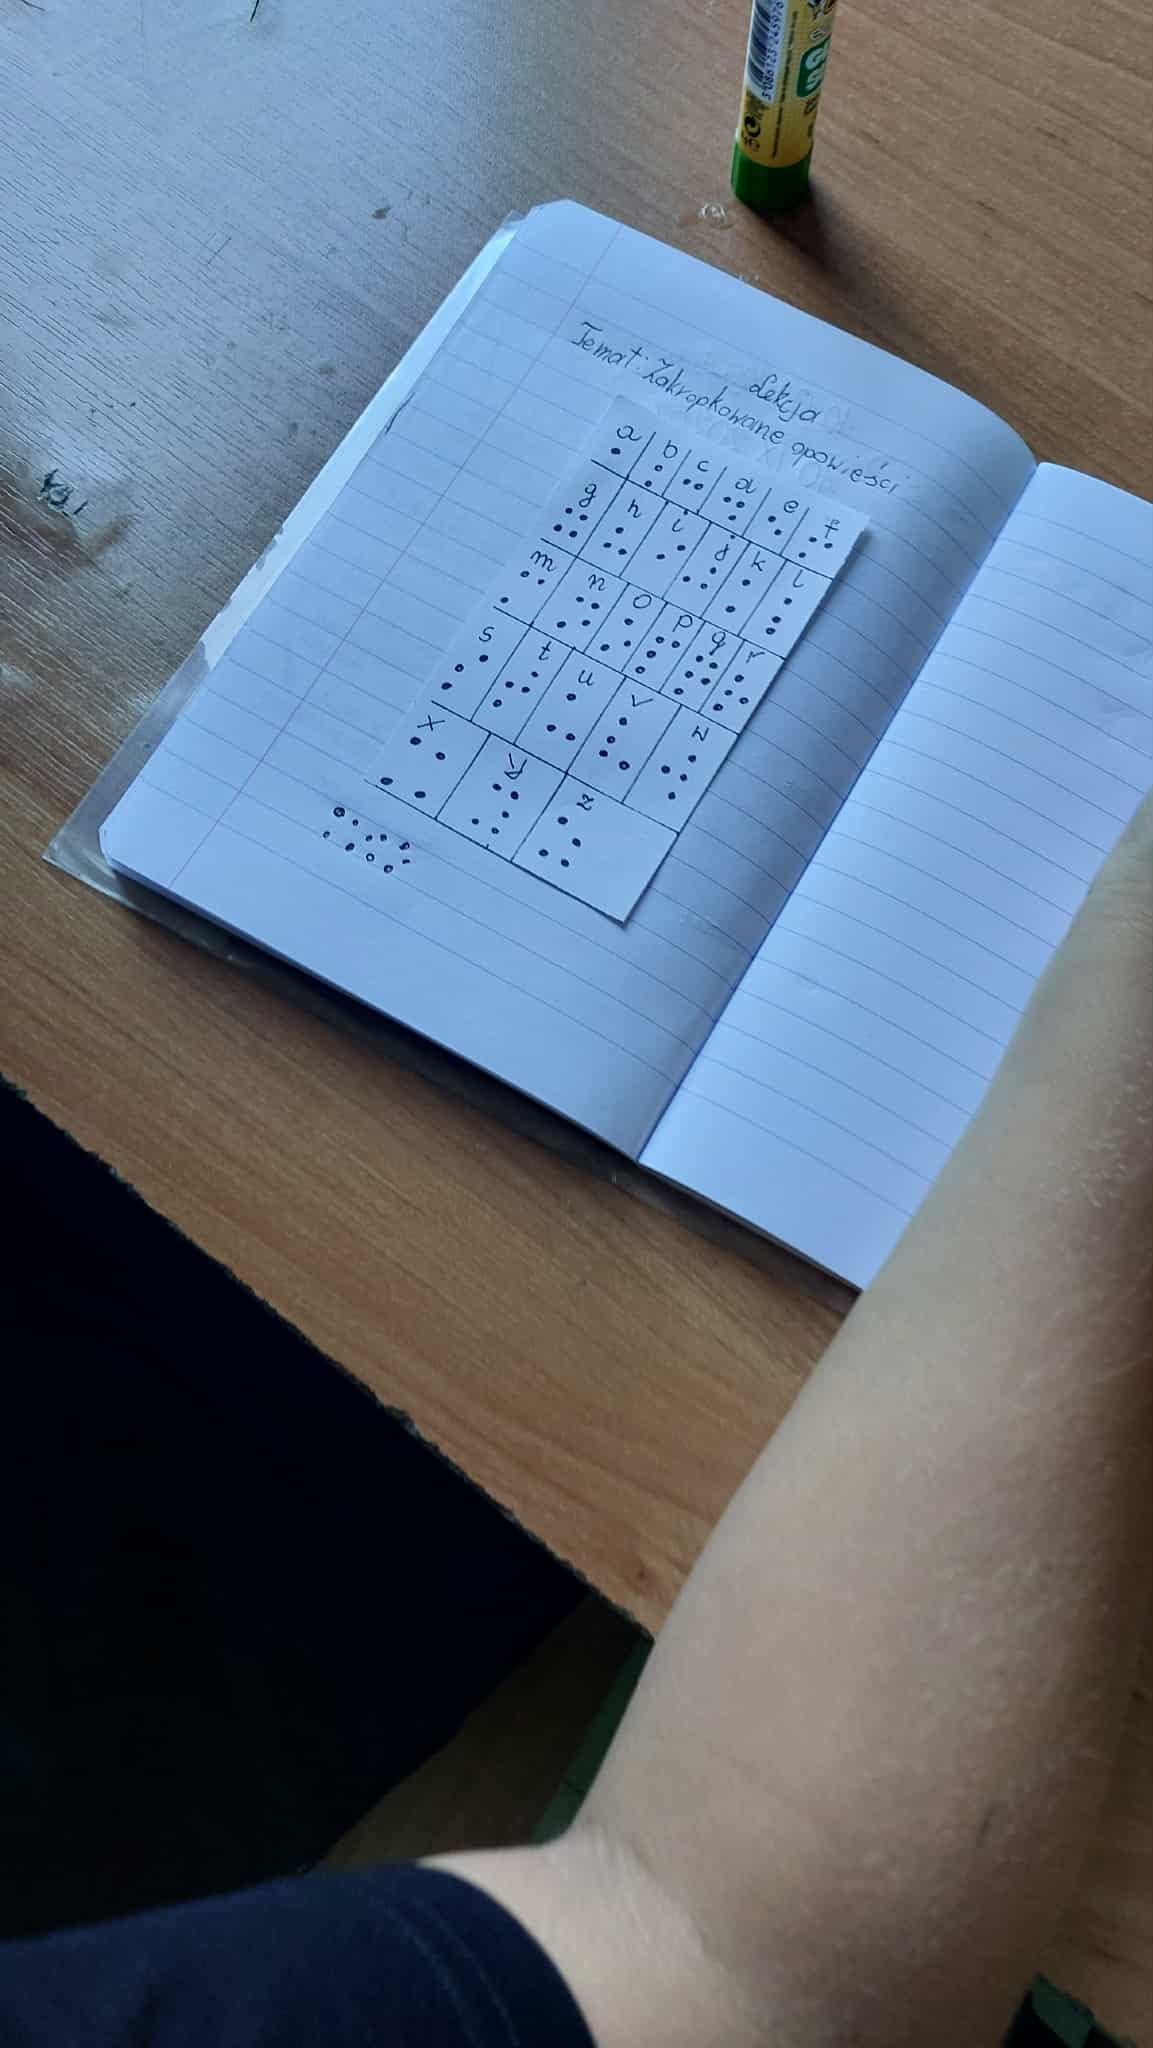 Lekcja
Temat: Zakropkowane opowieści
a b c d e f
g h i j k l
m n o p q r
s t u v w
x y z